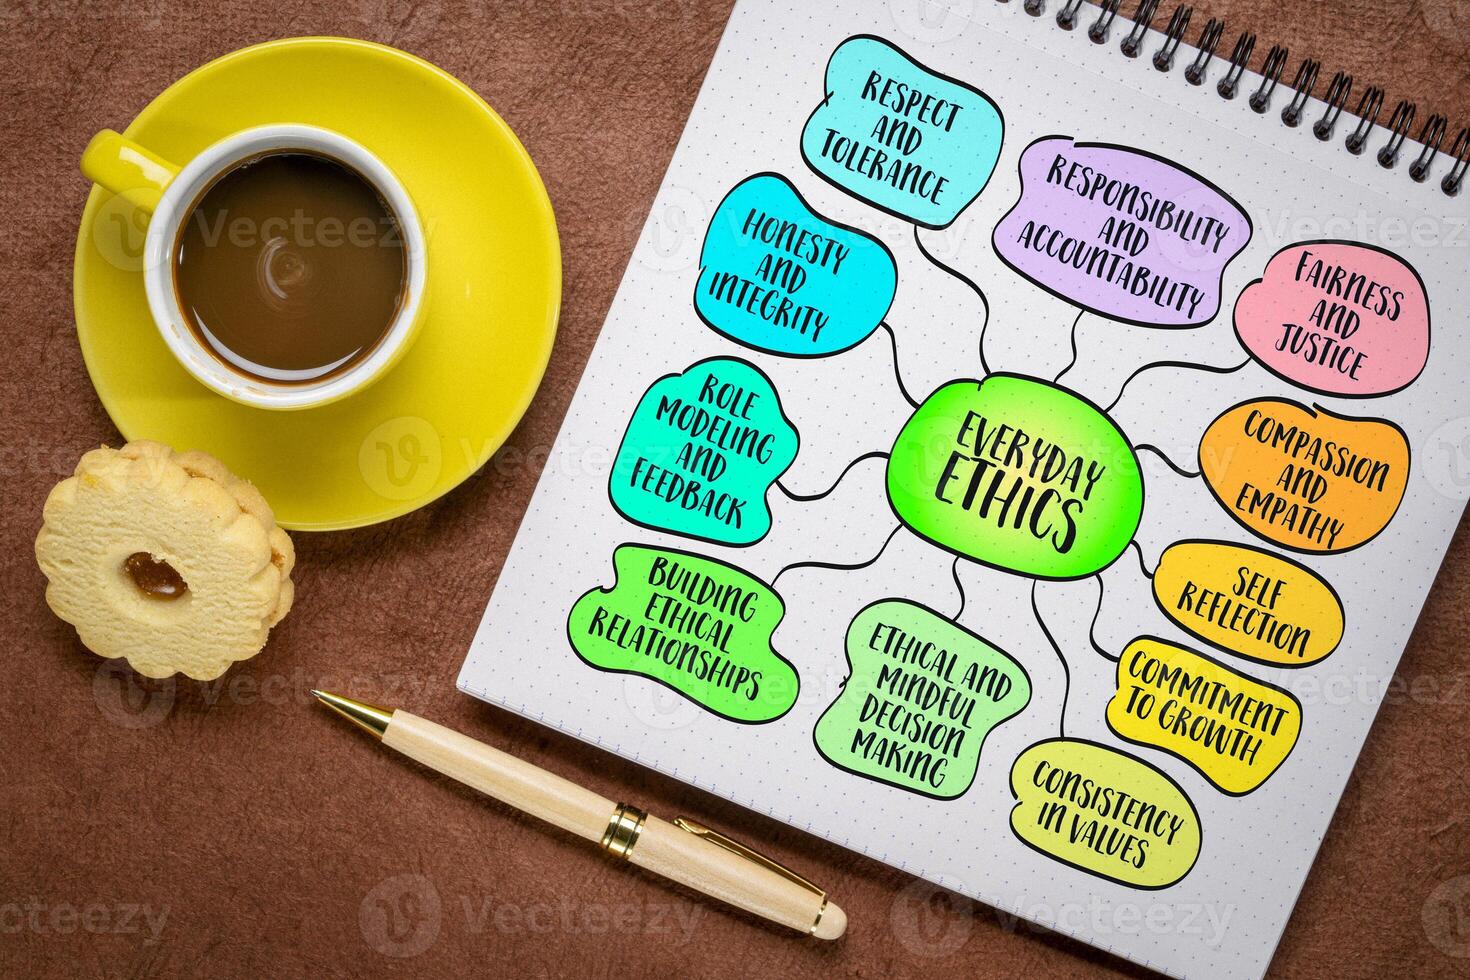 RESPECT
AND
TOLERANCE
RESPONSIBILITY
AND
ACCOUNTABILITY
HONESTY
AND
INTEGRITY
FAIRNESS
AND
JUSTICE
ROLE
MODELING
AND
FEEDBACK
EVERYDAY
ETHICS
COMPASSION
AND
EMPATHY
BUILDING
ETHICAL
RELATIONSHIPS
SELF
REFLECTION
ETHICAL AND
MINDFUL
DECISION
MAKING
COMMITMENT
TO GROWTH
CONSISTENCY
IN VALUES
Vecteezy
Vecteezy
Vecteezy
Vecteezy
Vecteezy